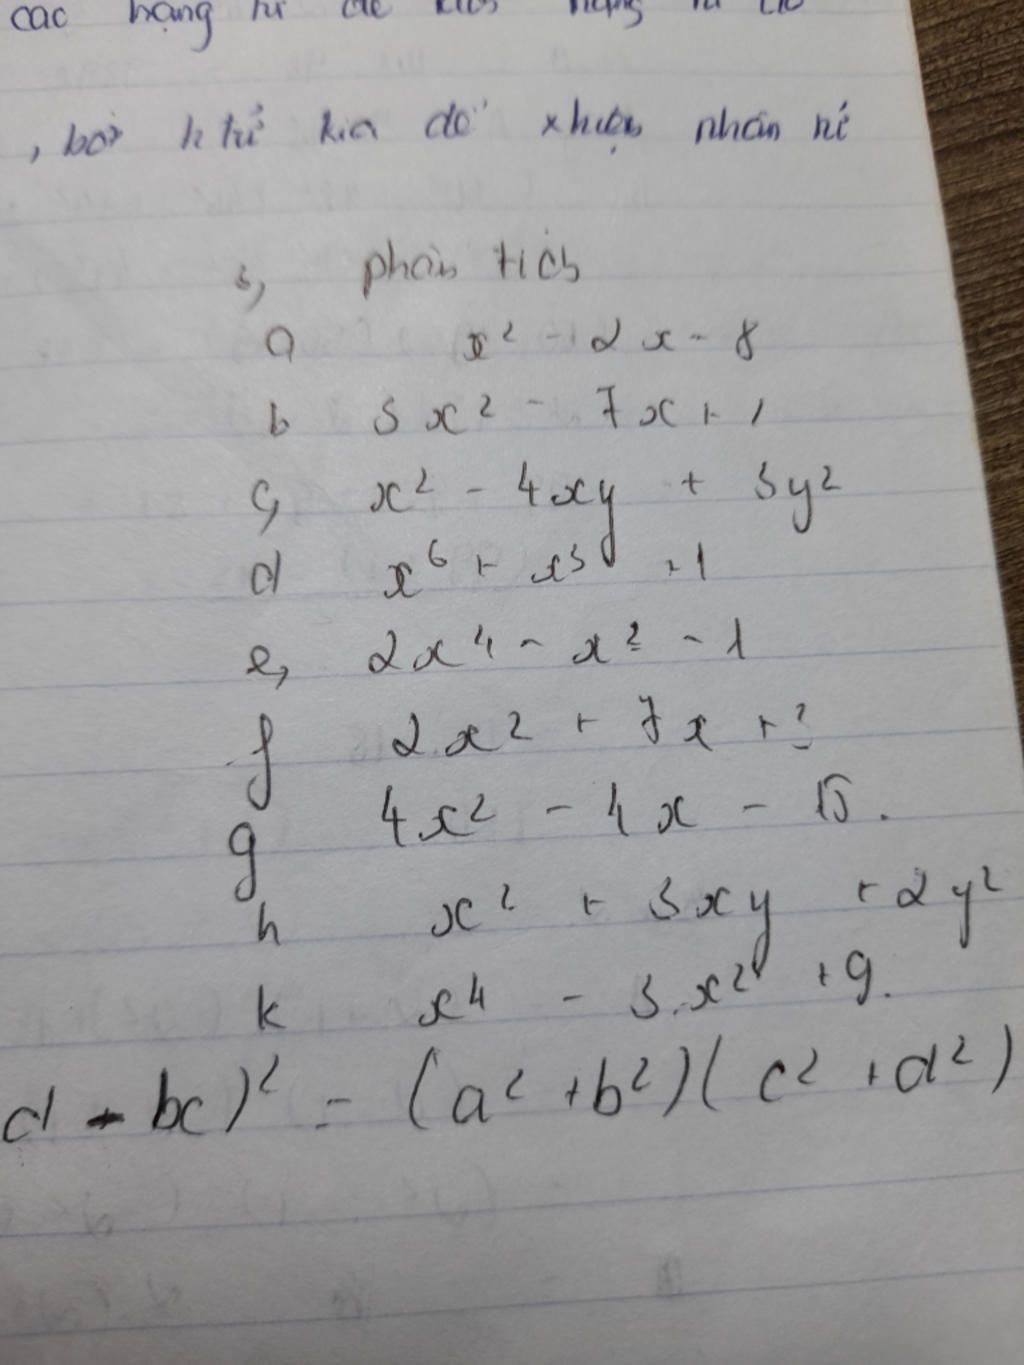 các hạng tử để tách hạng tử
, bởi h tử kia để xhiện nhân tử
3, phân tích
a x² - 2x - 8
b 5x² - 7x + 1
c, x² - 4xy + 3y²
d x⁶ + x³ + 1
e, 2x⁴ - x² - 1
f 2x² + 7x + 3
g 4x² - 4x - 15.
h x² + 3xy + 2y²
k x⁴ - 3x² + 9.
d - bc)² = (a² + b²)(c² + d²)